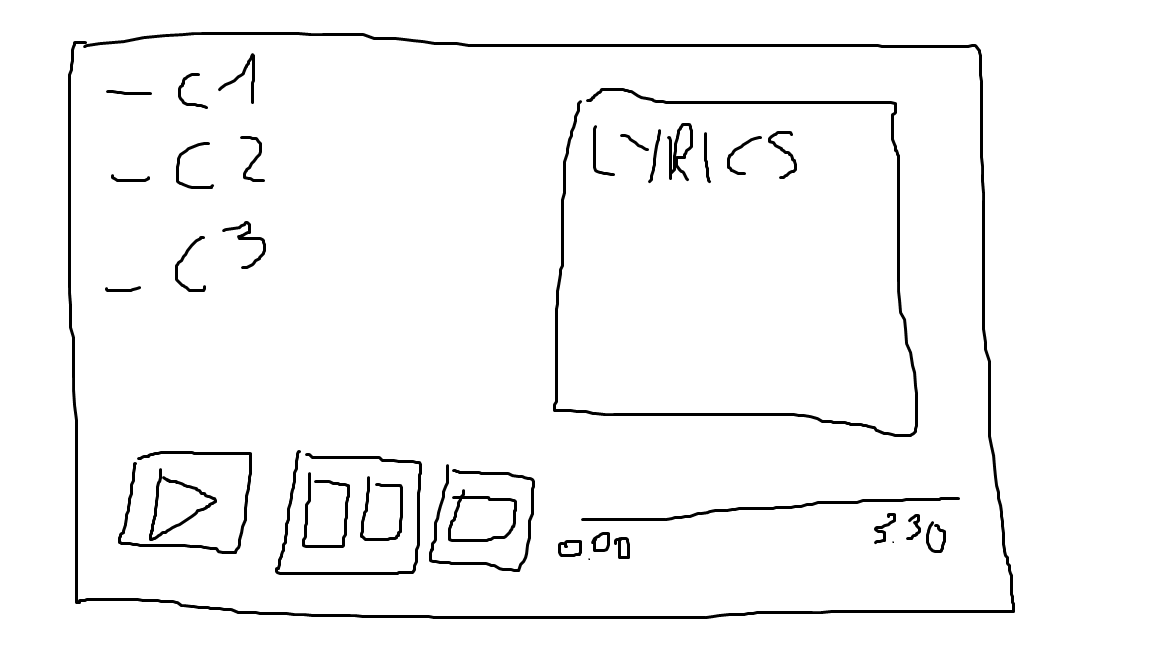 - C1
- C2
- C3
LYRICS
0.00
3.30